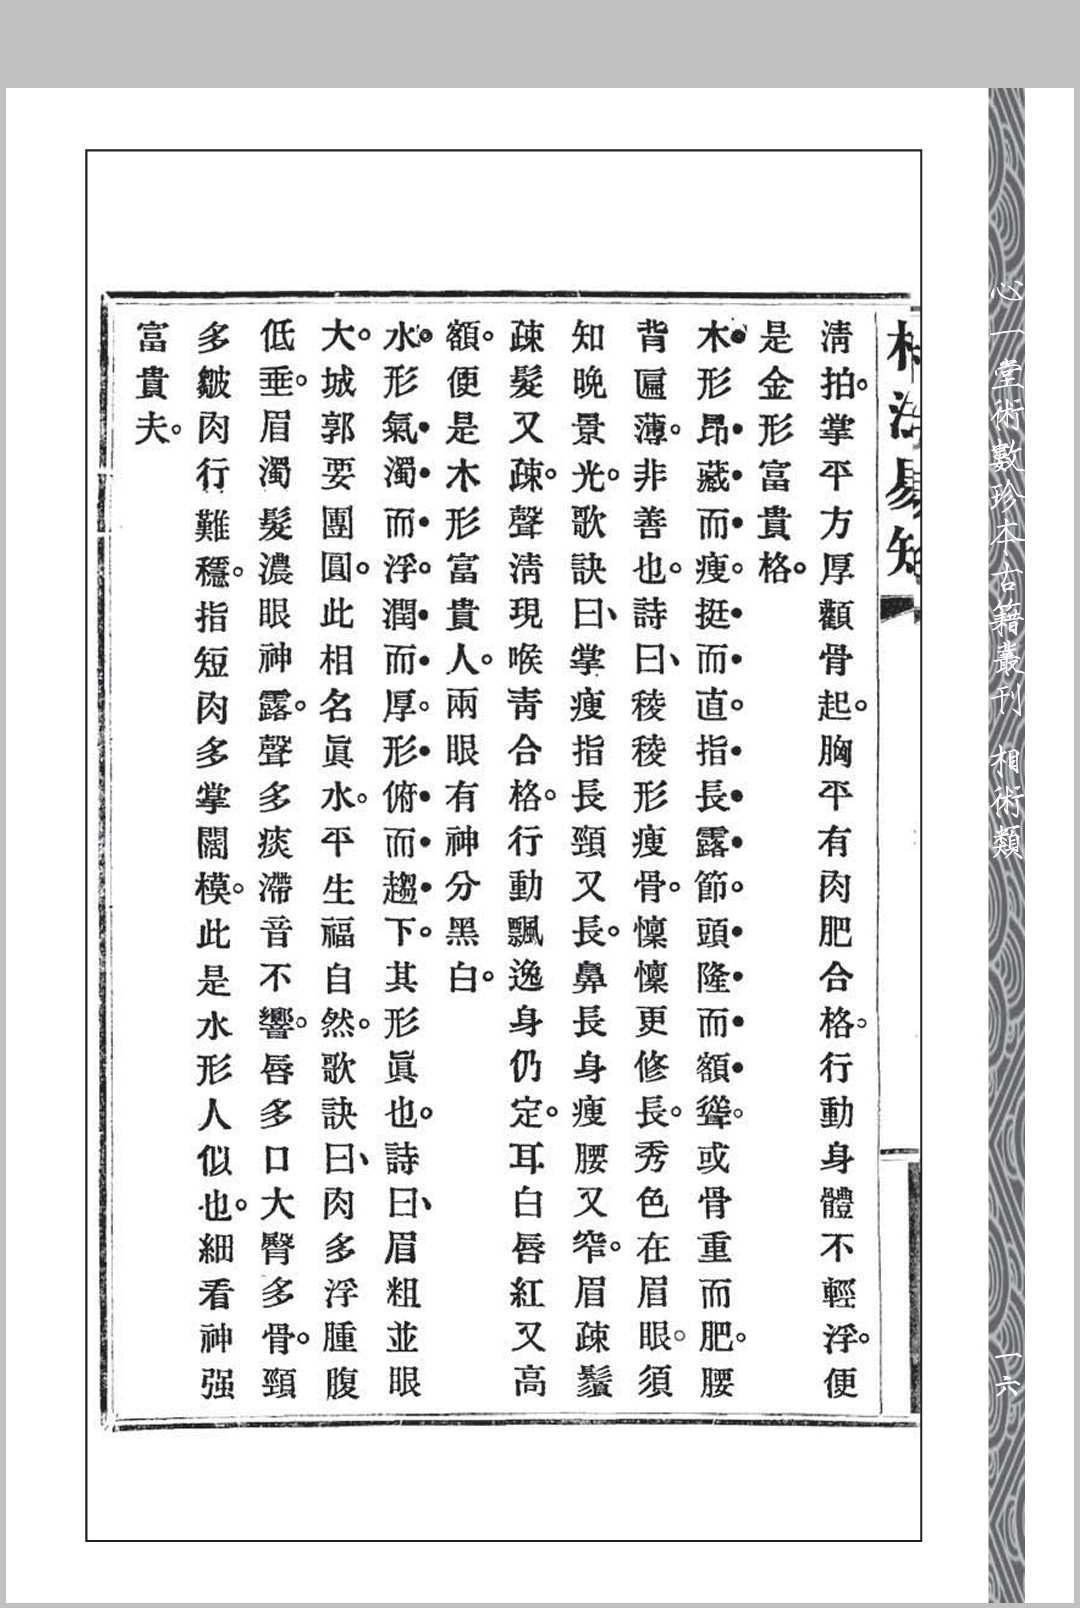 心一堂術數珍本古籍叢刊 相術類
一六
相法易知
淸拍。掌平方厚顴骨起。胸平有肉肥合格。行動身體不輕浮。便
是金形富貴格。
木形昂藏而瘦。挺而直。指長露節。頭隆而額聳。或骨重而肥。腰
背匾薄。非善也。詩曰、稜稜形瘦骨。懍懍更修長。秀色在眉眼。須
知晩景光。歌訣曰、掌瘦指長頸又長。鼻長身瘦腰又窄。眉疎鬚
疎髮又疎。聲淸現喉靑合格。行動飄逸身仍定。耳白唇紅又高
額。便是木形富貴人。兩眼有神分黑白。
水形氣濁而浮。潤而厚。形俯而趨下。其形眞也。詩曰、眉粗並眼
大。城郭要團圓。此相名眞水。平生福自然。歌訣曰、肉多浮腫腹
低垂。眉濁髮濃眼神露。聲多痰滯音不響。唇多口大臀多骨。頸
多皺肉行難穩。指短肉多掌闊模。此是水形人似也。細看神强
富貴夫。